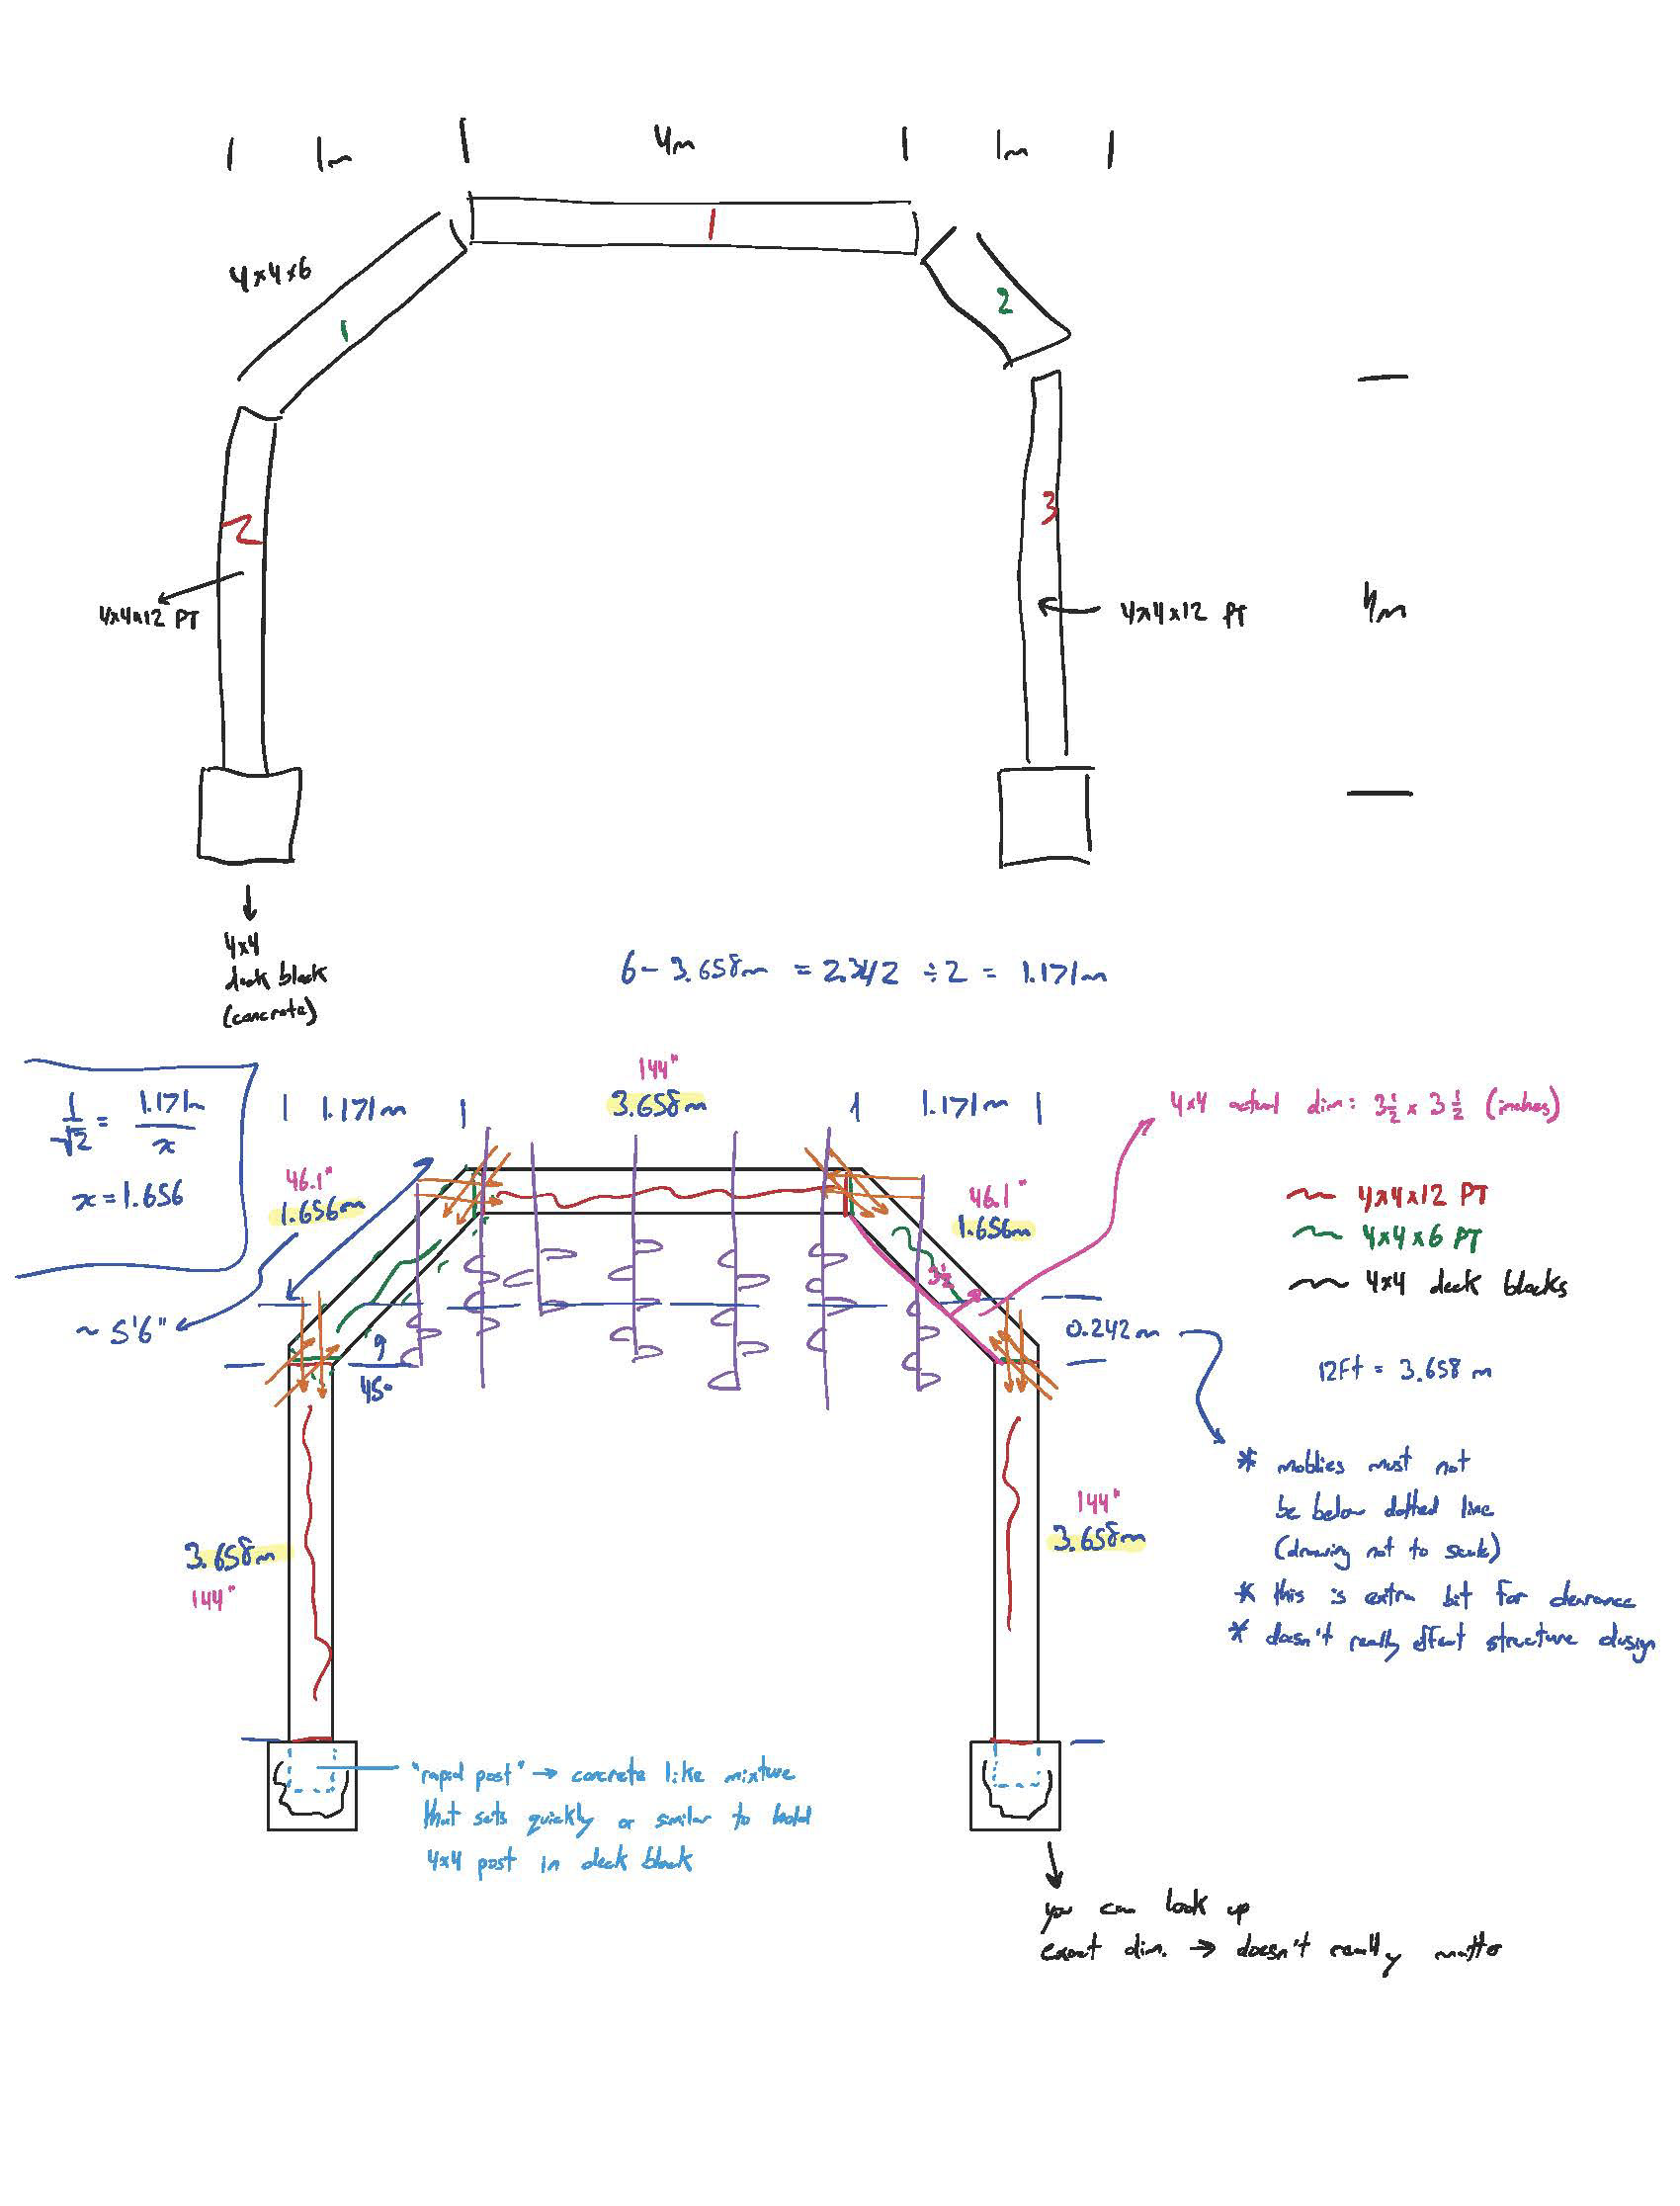 1m
4m
1m
4x4x6
1
1
2
2
3
4x4x12 PT
4x4x12 PT
4m
4x4
deck block
(concrete)
6 - 3.658m = 2.342 ÷ 2 = 1.171m
1/√2 = 1.171m/x
x = 1.656
144"
1.171m
3.658m
1.171m
4x4 actual dim: 3 1/2 x 3 1/2 (inches)
46.1"
1.656m
46.1"
1.656m
4x4x12 PT
4x4x6 PT
4x4 deck blocks
3 1/2
~ 5'6"
45°
0.242m
12Ft = 3.658 m
* moblies must not
be below dotted line
(drawing not to scale)
* this is extra bit for clearance
* doesn't really effect structure design
144"
3.658m
3.658m
144"
"rapid post" → concrete like mixture
that sets quickly or similar to hold
4x4 post in deck block
you can look up
exact dim. → doesn't really matter